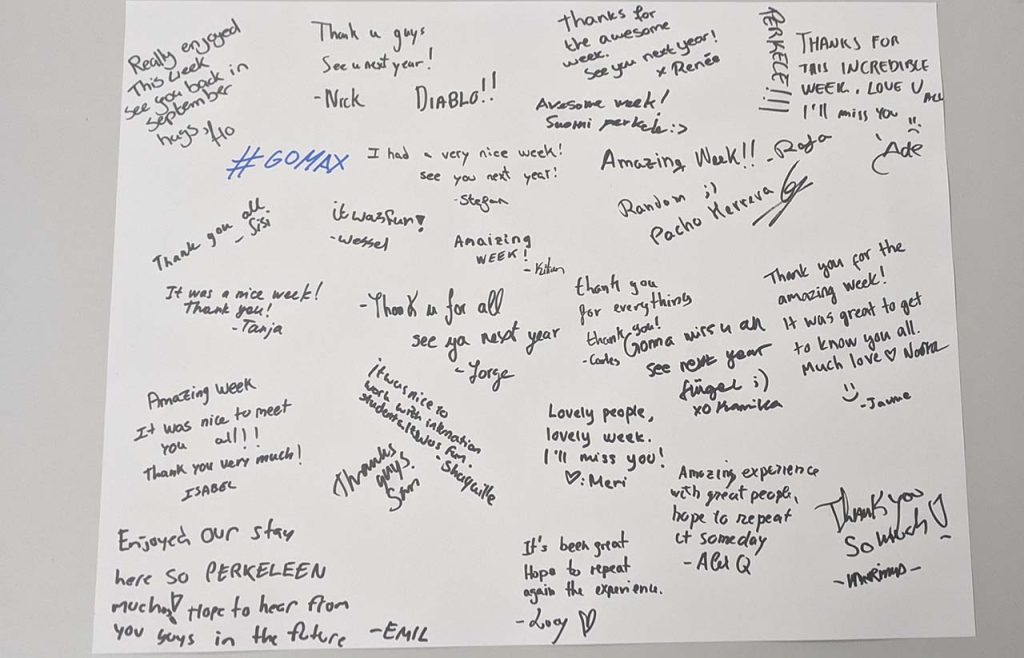 Really enjoyed
This week
see you back in
september
hugs
Thank u guys
See u next year!
-Nick
DIABLO!!
Thanks for
the awesome
week.
See you next year!
x Renée
Awesome week!
Suomi perkele :>
PERKELE!!!
THANKS FOR
THIS INCREDIBLE
WEEK. LOVE U ALL
I'll miss you
Ade
#GOMAX
I had a very nice week!
see you next year!
-Stefan
Amazing Week!! -Rafa
Random ;)
Pacho Herrera
Thank you all.
- Sisi
it was fun!
-Wessel
Amaizing
WEEK!
It was a nice week!
Thank you!
-Tanja
-Thank u for all
see ya next year
-Jorge
thank you
for everything
thank you!
-Carles
Gonna miss u all
see next year
fingel ;)
xo Kamilla
Thank you for the
amazing week!
It was great to get
to know you all.
Much love ♡ Noora
-Jaume
Amazing Week
It was nice to meet
you all!!!
Thank you very much!
ISABEL
it was nice to
work with internation
students. It was fun.
- Shaquille
Thanks
guys.
Sam
Lovely people,
lovely week.
I'll miss you!
♡: Meri
Amazing experience
with great people,
hope to repeat
it someday
- Alex Q
Thank you
So much!
- Marinus -
Enjoyed our stay
here so PERKELEEN
much! Hope to hear from
you guys in the future -EMIL
It's been great
Hope to repeat
again the experience.
- Lucy ♡